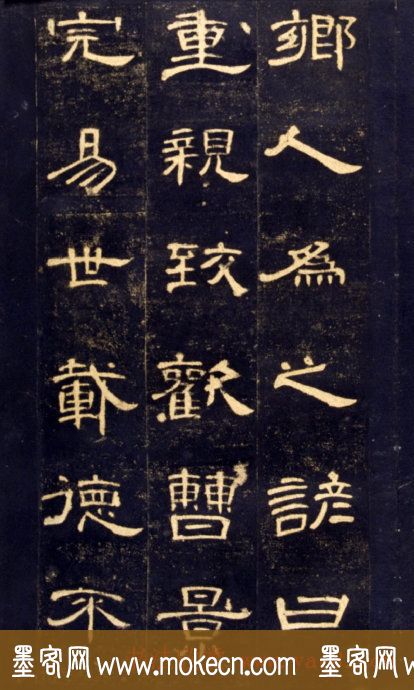 鄉人為之諺曰
重親致歡曹景
完易世載德不
墨客网 www.mokecn.com 墨客网